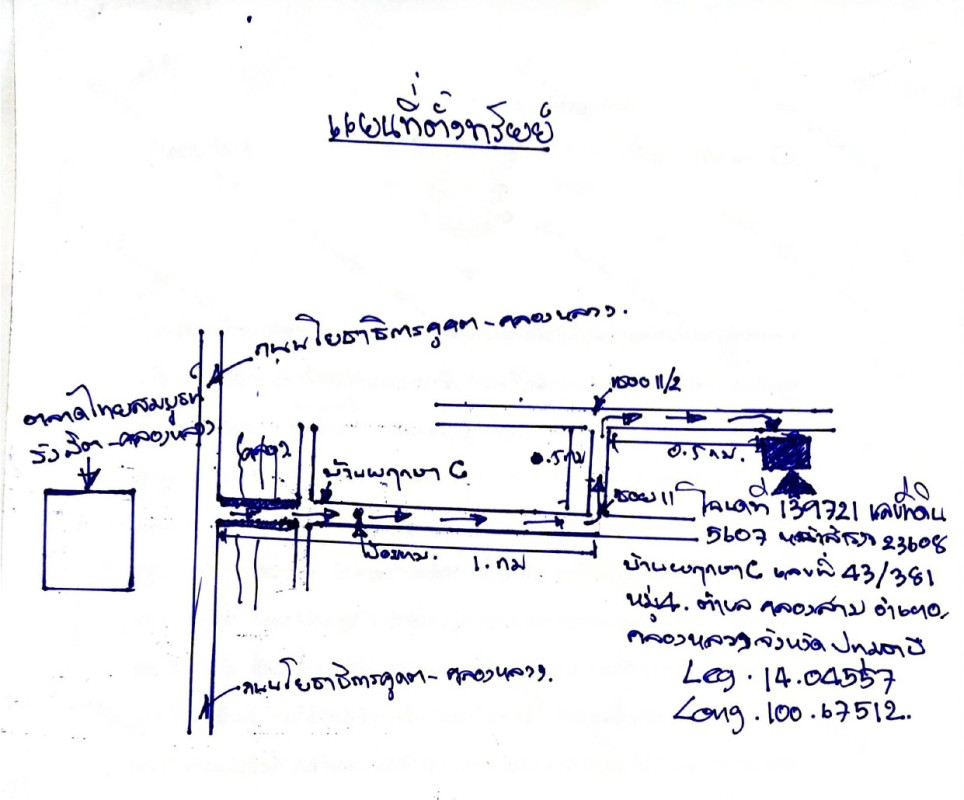 แผนที่ตั้งทรัพย์
ถนนโยธาธิการคูคต-คลองหลวง.
ตลาดไทยสมบูรณ์
รังสิต-คลองหลวง
คลอง2
บ้านพฤกษา C
ซอย 11/2
0.5 กม
0.5 กม.
ซอย 11
ป้อมยาม.
1. กม
โฉนดที่ 139721 เลขที่ดิน
5607 หน้าสำรวจ 23608
บ้านพฤกษา C เลขที่ 43/381
หมู่4. ตำบล คลองสาม อำเภอ.
คลองหลวง จังหวัด ปทุมธานี
Leg. 14.04557
Long. 100.67512.
ถนนโยธาธิการคูคต-คลองหลวง.